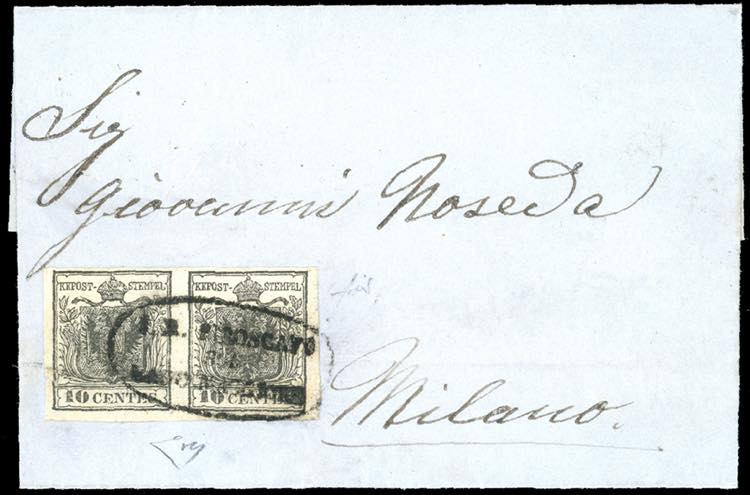 Sig
Giovanni Noseda
KKPOST-STEMPEL KKPOST-STEMPEL
I. R. PIROSCAFO
10 CENTES 10 CENTES
Milano.